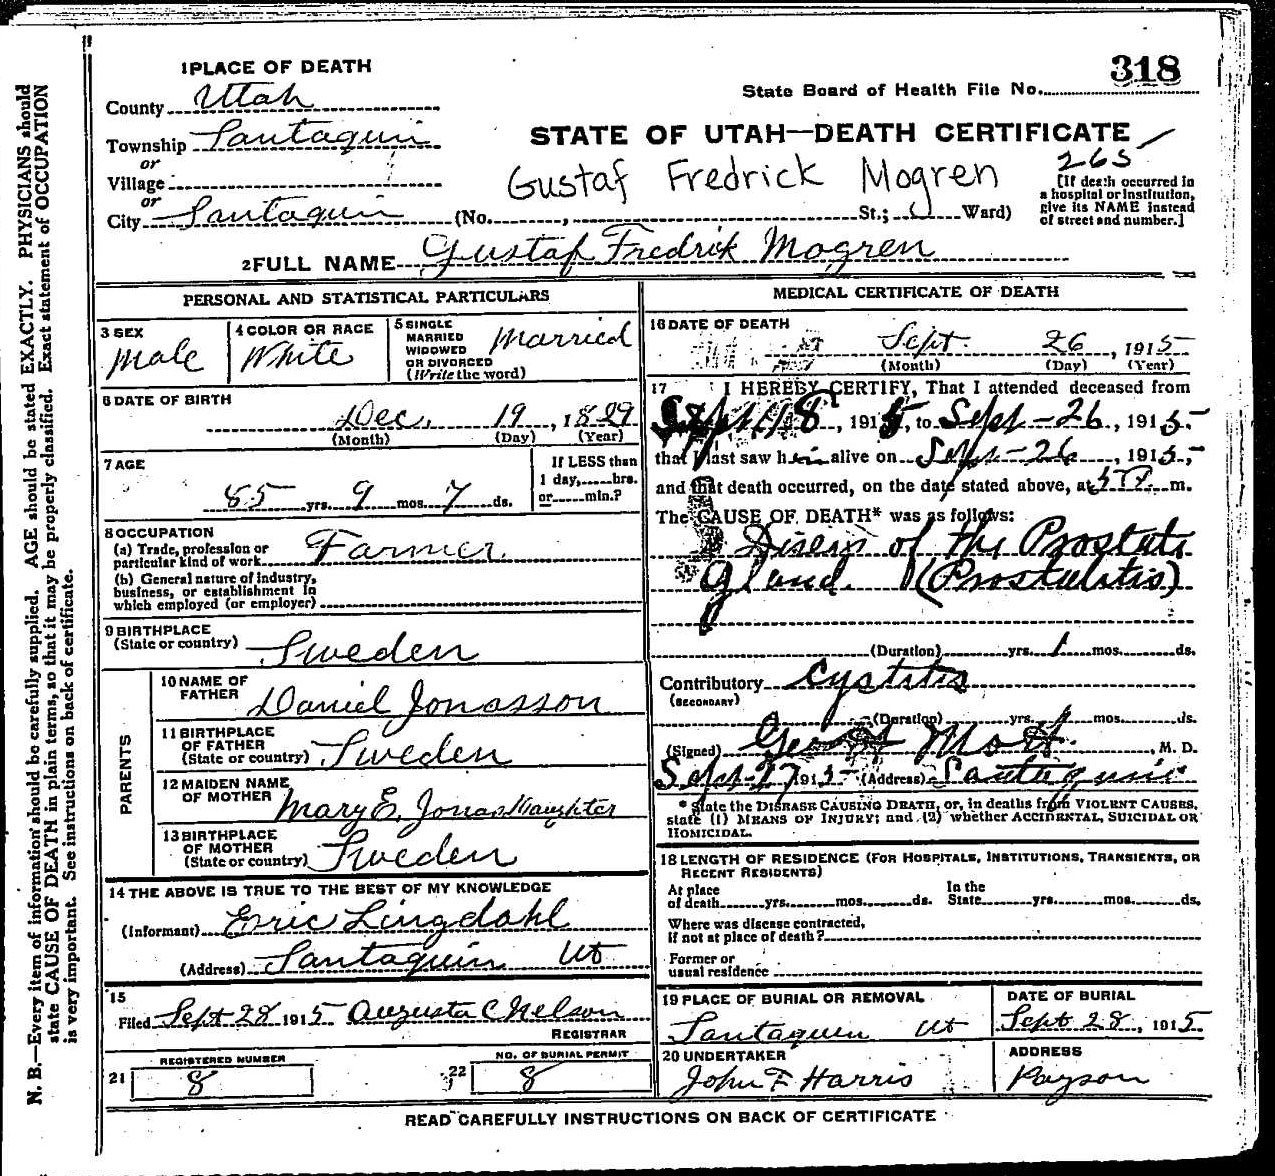 318
State Board of Health File No.
STATE OF UTAH—DEATH CERTIFICATE
265
[If death occurred in
a hospital or institution,
give its NAME instead
of street and number.]
1 PLACE OF DEATH
County Utah
Township Santaquin
or
Village
or
City Santaquin (No. , St.; Ward)
Gustaf Fredrick Mogren
2 FULL NAME Gustaf Fredrik Mogren
PERSONAL AND STATISTICAL PARTICULARS
3 SEX
Male
4 COLOR OR RACE
White
5 SINGLE
MARRIED
WIDOWED
OR DIVORCED
(Write the word)
Married
6 DATE OF BIRTH
Dec. 19, 1829
(Month) (Day) (Year)
7 AGE
85 yrs. 9 mos. 7 ds.
If LESS than
1 day, hrs.
or min.?
8 OCCUPATION
(a) Trade, profession or
particular kind of work Farmer
(b) General nature of industry,
business, or establishment in
which employed (or employer)
9 BIRTHPLACE
(State or country) Sweden
PARENTS
10 NAME OF
FATHER Daniel Jonasson
11 BIRTHPLACE
OF FATHER
(State or country) Sweden
12 MAIDEN NAME
OF MOTHER Mary E. Jonas Daughter
13 BIRTHPLACE
OF MOTHER
(State or country) Sweden
14 THE ABOVE IS TRUE TO THE BEST OF MY KNOWLEDGE
(Informant) Eric Lingdahl
(Address) Santaquin Ut
15
Filed Sept 28 1915 Augusta C Nelson
REGISTRAR
REGISTERED NUMBER
21 8
NO. OF BURIAL PERMIT
22 8
MEDICAL CERTIFICATE OF DEATH
16 DATE OF DEATH
Sept. 26, 1915
(Month) (Day) (Year)
17 I HEREBY CERTIFY, That I attended deceased from
Sept 18, 1915, to Sept-26, 1915.
that I last saw him alive on Sept-26, 1915,
and that death occurred, on the date stated above, at m.
The CAUSE OF DEATH* was as follows:
of the Prostate
Gland. (Prostatitis)
(Duration) yrs. 1 mos. ds.
Contributory Cystitis
(SECONDARY)
(Duration) yrs. 1 mos. ds.
(Signed) Mott, M. D.
Sept-27 1915 (Address) Santaquin
* State the DISEASE CAUSING DEATH, or, in deaths from VIOLENT CAUSES,
state (1) MEANS OF INJURY; and (2) whether ACCIDENTAL, SUICIDAL OR
HOMICIDAL.
18 LENGTH OF RESIDENCE (FOR HOSPITALS, INSTITUTIONS, TRANSIENTS, OR
RECENT RESIDENTS)
At place
of death yrs. mos. ds.
In the
State yrs. mos. ds.
Where was disease contracted,
if not at place of death?
Former or
usual residence
19 PLACE OF BURIAL OR REMOVAL
Santaquin Ut
DATE OF BURIAL
Sept 28, 1915
20 UNDERTAKER
John F Harris
ADDRESS
Payson
READ CAREFULLY INSTRUCTIONS ON BACK OF CERTIFICATE
N. B.—Every item of information should be carefully supplied. AGE should be stated EXACTLY. PHYSICIANS should
state CAUSE OF DEATH in plain terms, so that it may be properly classified. Exact statement of OCCUPATION
is very important. See instructions on back of certificate.